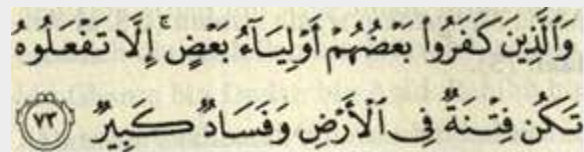 وَٱلَّذِينَ كَفَرُوا۟ بَعْضُهُمْ أَوْلِيَآءُ بَعْضٍ ۚ إِلَّا تَفْعَلُوهُ
تَكُن فِتْنَةٌ فِى ٱلْأَرْضِ وَفَسَادٌ كَبِيرٌ ٧٣